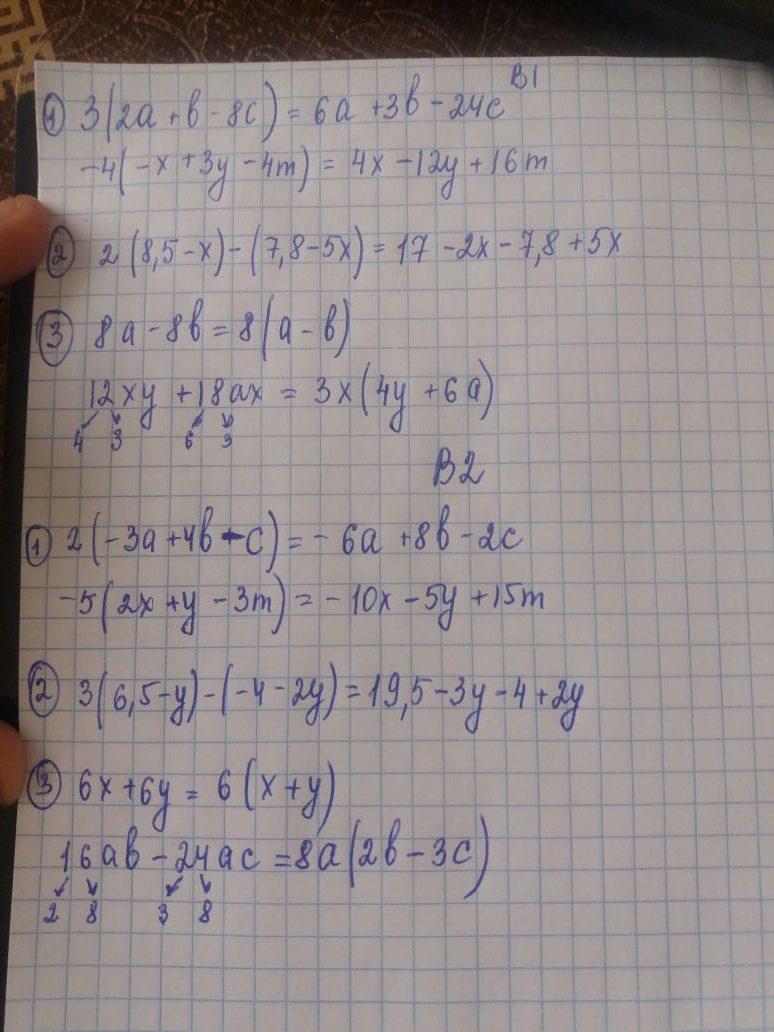 В1
① 3(2a+в-8c)=6a+3в-24c
-4(-x+3y-4m)=4x-12y+16m
② 2(8,5-x)-(7,8-5x)=17-2x-7,8+5x
③ 8a-8в=8(a-в)
12xy+18ax=3x(4y+6a)
4 3 6 3
В2
① 2(-3a+4в-c)=-6a+8в-2c
-5(2x+y-3m)=-10x-5y+15m
② 3(6,5-y)-(-4-2y)=19,5-3y-4+2y
③ 6x+6y=6(x+y)
16aв-24ac=8a(2в-3c)
2 8 3 8